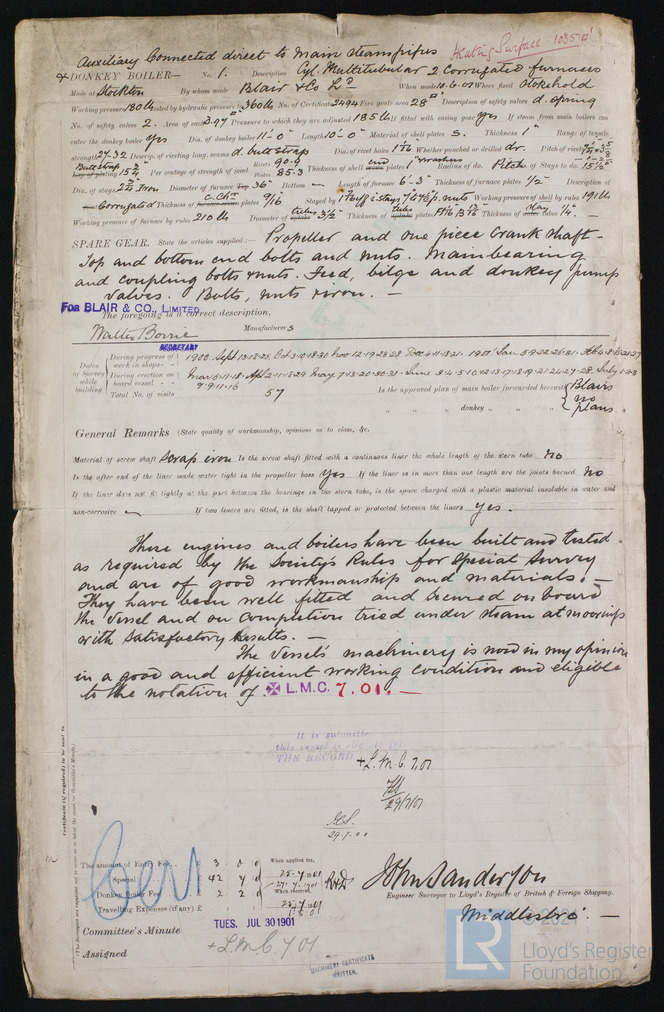 Auxiliary Connected direct to main steampipes Heating Surface 1035 □'
DONKEY BOILER— No. 1. Description Cyl. Multitubular 2 Corrugated furnaces
Made at Stockton By whom made Blair & Co Ld When made 10.6.01 Where fixed Stokehold
Working pressure 180 lbs tested by hydraulic pressure to 360 lbs No. of Certificate 2494 Fire grate area 28 □' Description of safety valves d. spring
No. of safety valves 2. Area of each 3.97 Pressure to which they are adjusted 185 lbs If fitted with easing gear yes If steam from main boilers can
enter the donkey boiler yes Dia. of donkey boiler 11'-0" Length 10'-0" Material of shell plates S. Thickness 1" Range of tensile
strength 27-32 Descrip. of riveting long. seams d. butt strap Dia. of rivet holes Whether punched or drilled dr. Pitch of rivets
Lap of plating 15 3/4 Per centage of strength of joint Rivets 90.9 Plates 85.3 Thickness of shell end plates Radius of do. Pitch of Stays to do. 15 1/2"
Dia. of stays Iron Diameter of furnace Top 36" Bottom — Length of furnace 6'-3" Thickness of furnace plates 1/2" Description of
Corrugated Thickness of c. ch. plates 9/16 Stayed by nuts Working pressure of shell by rules 191 lb
Working pressure of furnace by rules 210 lb Diameter of tubes 3 1/2" Thickness of tube plates Thickness of plates 1/4".
SPARE GEAR. State the articles supplied:— Propeller and one piece Crank shaft—
Top and bottom end bolts and nuts. Main bearing
and coupling bolts & nuts. Feed, bilge and donkey pump
valves. Bolts, nuts & iron. —
FOR BLAIR & CO., LIMITED,
The foregoing is a correct description,
Walter Borrie Manufacturers
SECRETARY
Dates of Survey while building
During progress of work in shops - - 1900 Sept. 13.18.25, Oct. 3.10.18.30 Nov. 12.19.23.28 Dec. 4.11.18.21. 1901 Jan. 5.9.22.26.31. Feb.
During erection on board vessel - - - Mar. 6.11.18. Apl. 2.11.18.29 May. 7.13.20.30.31. June 3.4.5.10.12.13.17.18.19.21.24.27.28. July 1.2.8
7.9.11.16
Total No. of visits 57 Is the approved plan of main boiler forwarded herewith Blairs
" " " donkey " " " no plans
General Remarks (State quality of workmanship, opinions as to class, &c.
Material of screw shaft Scrap iron Is the screw shaft fitted with a continuous liner the whole length of the stern tube no
Is the after end of the liner made water tight in the propeller boss yes If the liner is in more than one length are the joints burned no
If the liner does not fit tightly at the part between the bearings in the stern tube, is the space charged with a plastic material insoluble in water and
non-corrosive — If two liners are fitted, is the shaft lapped or protected between the liners yes.
These engines and boilers have been built and tested
as required by the Society's Rules for Special Survey
and are of good workmanship and materials. —
They have been well fitted and secured on board
the vessel and on completion tried under steam at moorings
with satisfactory results. —
The Vessel's machinery is now in my opinion
in a good and efficient working condition and eligible
to the notation of ✠ L.M.C. 7.01. —
It is submitted
this vessel is eligible for
THE RECORD + L.M.C. 7.01
29/7/01
29.7.01
Certificate (if required) to be sent to
(The Surveyors are requested not to write on or below the space for Committee's Minute.)
Cert
The amount of Entry Fee . . £ 3 : 0 : 0 When applied for,
Special . . . . 42 : 7 : 0 25.7.1901
Donkey Boiler Fee . . . 2 : 2 : 0 When received,
Travelling Expenses (if any) £ : : 1901
John Sanderson
Engineer Surveyor to Lloyd's Register of British & Foreign Shipping.
Middlesbro'. —
Committee's Minute TUES. JUL 30 1901
Assigned + L.M.C. 7.01
MACHINERY CERTIFICATE
WRITTEN.
© 2021
LR
Lloyd's Register
Foundation